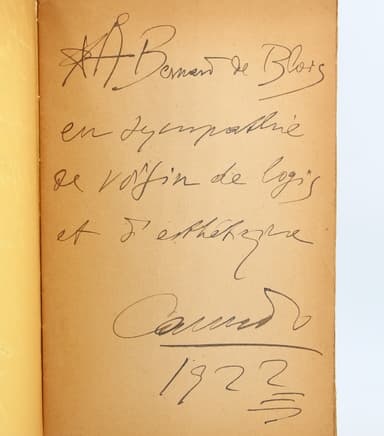 A Bernard de Blois
en sympathie
de voisin de logis
et d'esthétique
Canudo
1922